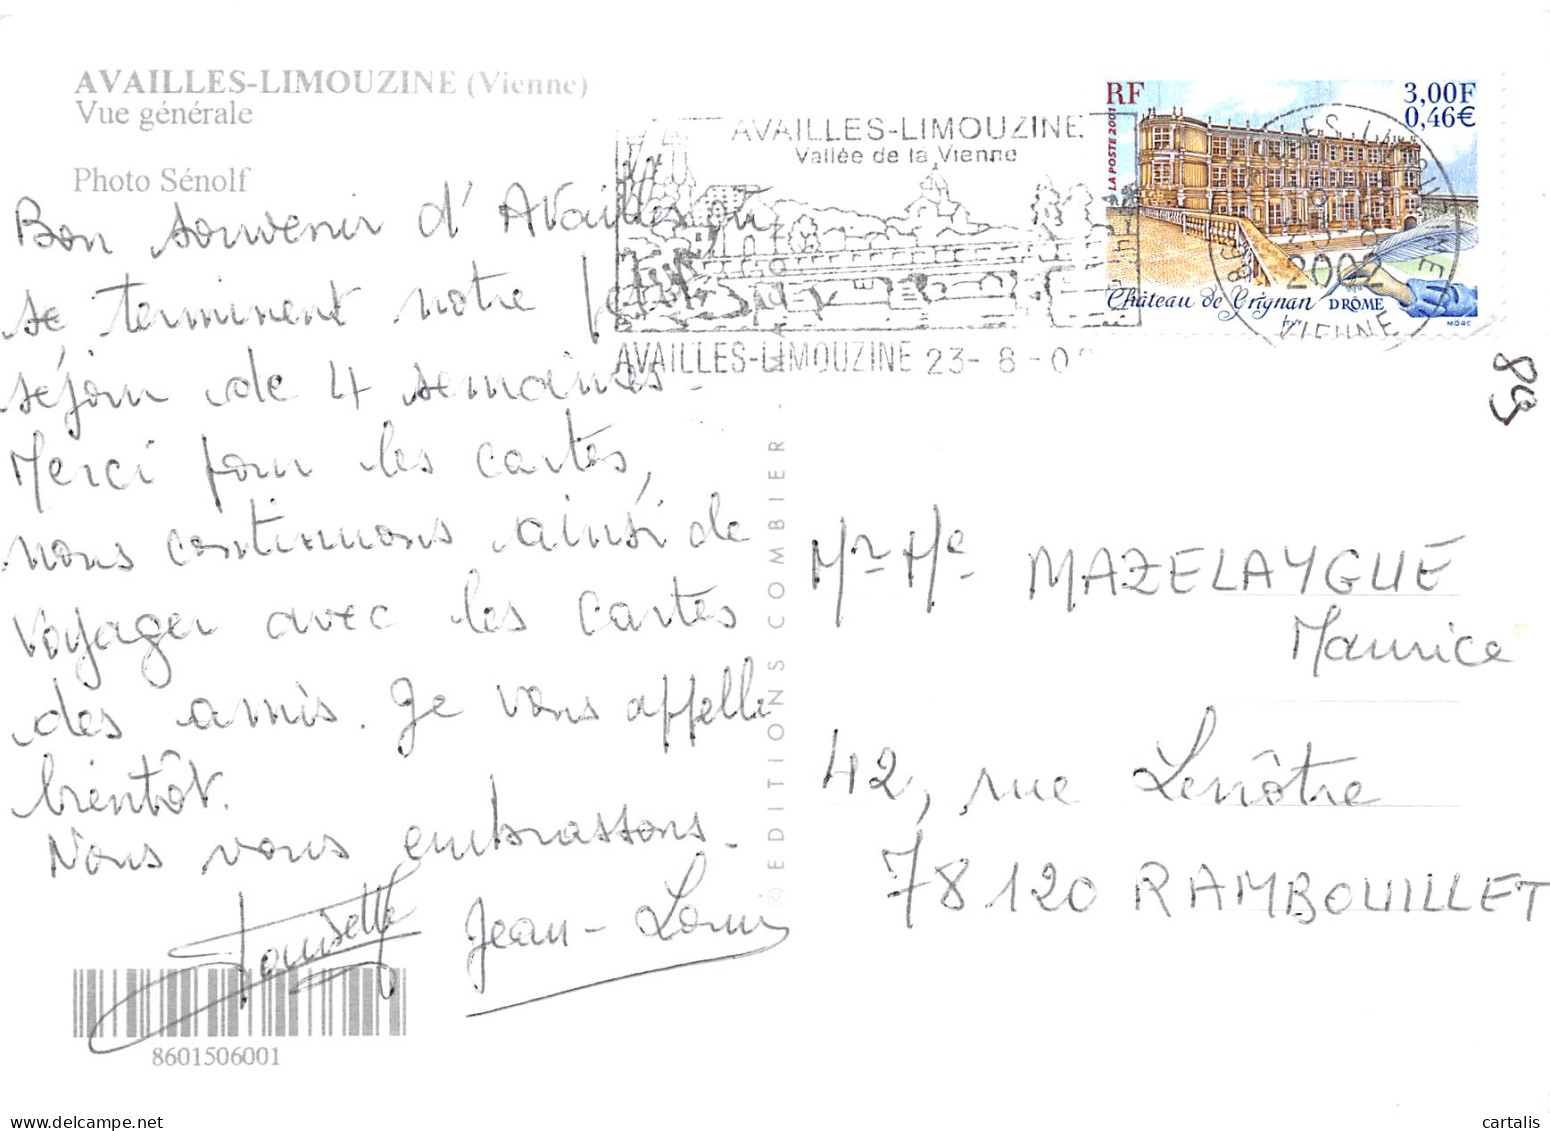 AVAILLES-LIMOUZINE (Vienne)
Vue générale
Photo Sénolf
Bon souvenir d'Availles où
se terminent notre
séjour de 4 semaines.
Merci pour les cartes,
nous continuons ainsi de
voyager avec les cartes
des amis. Je vous appelle
bientôt.
Nous vous embrassons.
Jean-Louis
8601506001
© EDITIONS COMBIER
AVAILLES-LIMOUZINE
Vallée de la Vienne
AVAILLES-LIMOUZINE 23-8-0
RF
3,00F
0,46€
LA POSTE 2001
Château de Grignan DRÔME
2002
VIENNE
89
Mr Me MAZELAYGUE
Maurice
42, rue Lenôtre
78120 RAMBOUILLET
www.delcampe.net
cartalis